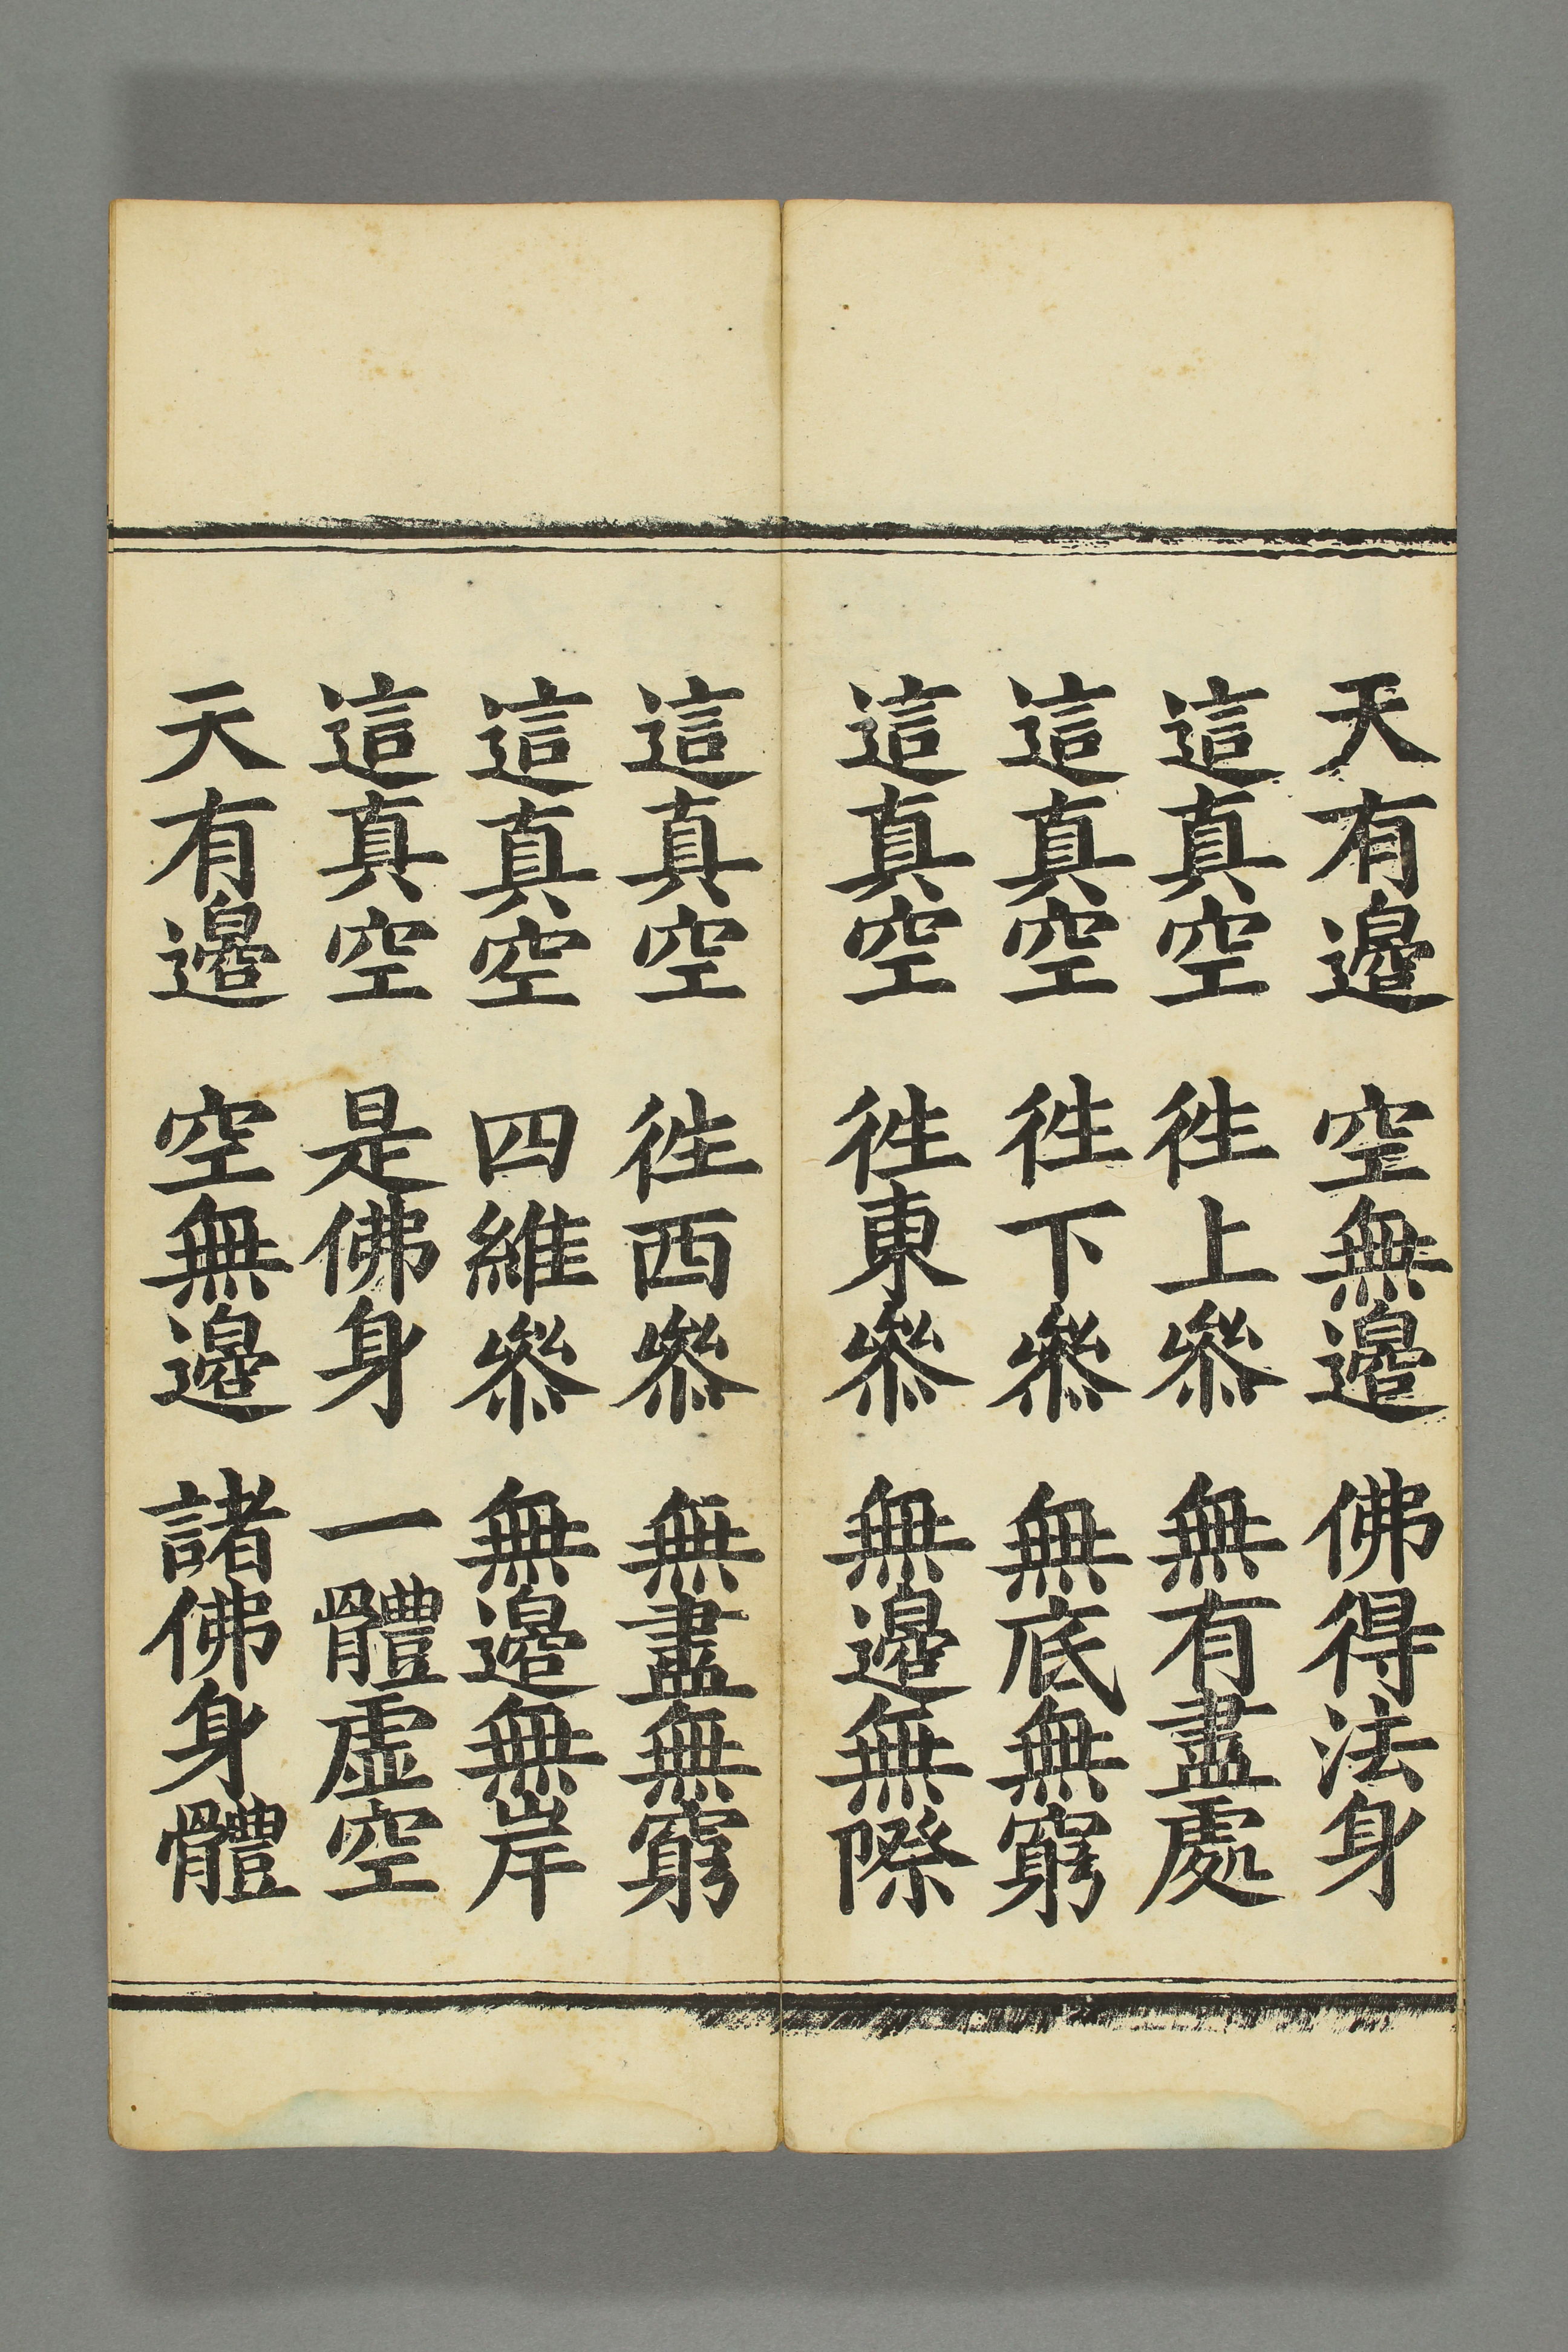 天有邊 空無邊 佛得法身
這真空 徃上叅 無有盡處
這真空 徃下叅 無底無窮
這真空 徃東叅 無邊無際
這真空 徃西叅 無盡無窮
這真空 四維叅 無邊無岸
這真空 是佛身 一體虛空
天有邊 空無邊 諸佛身體